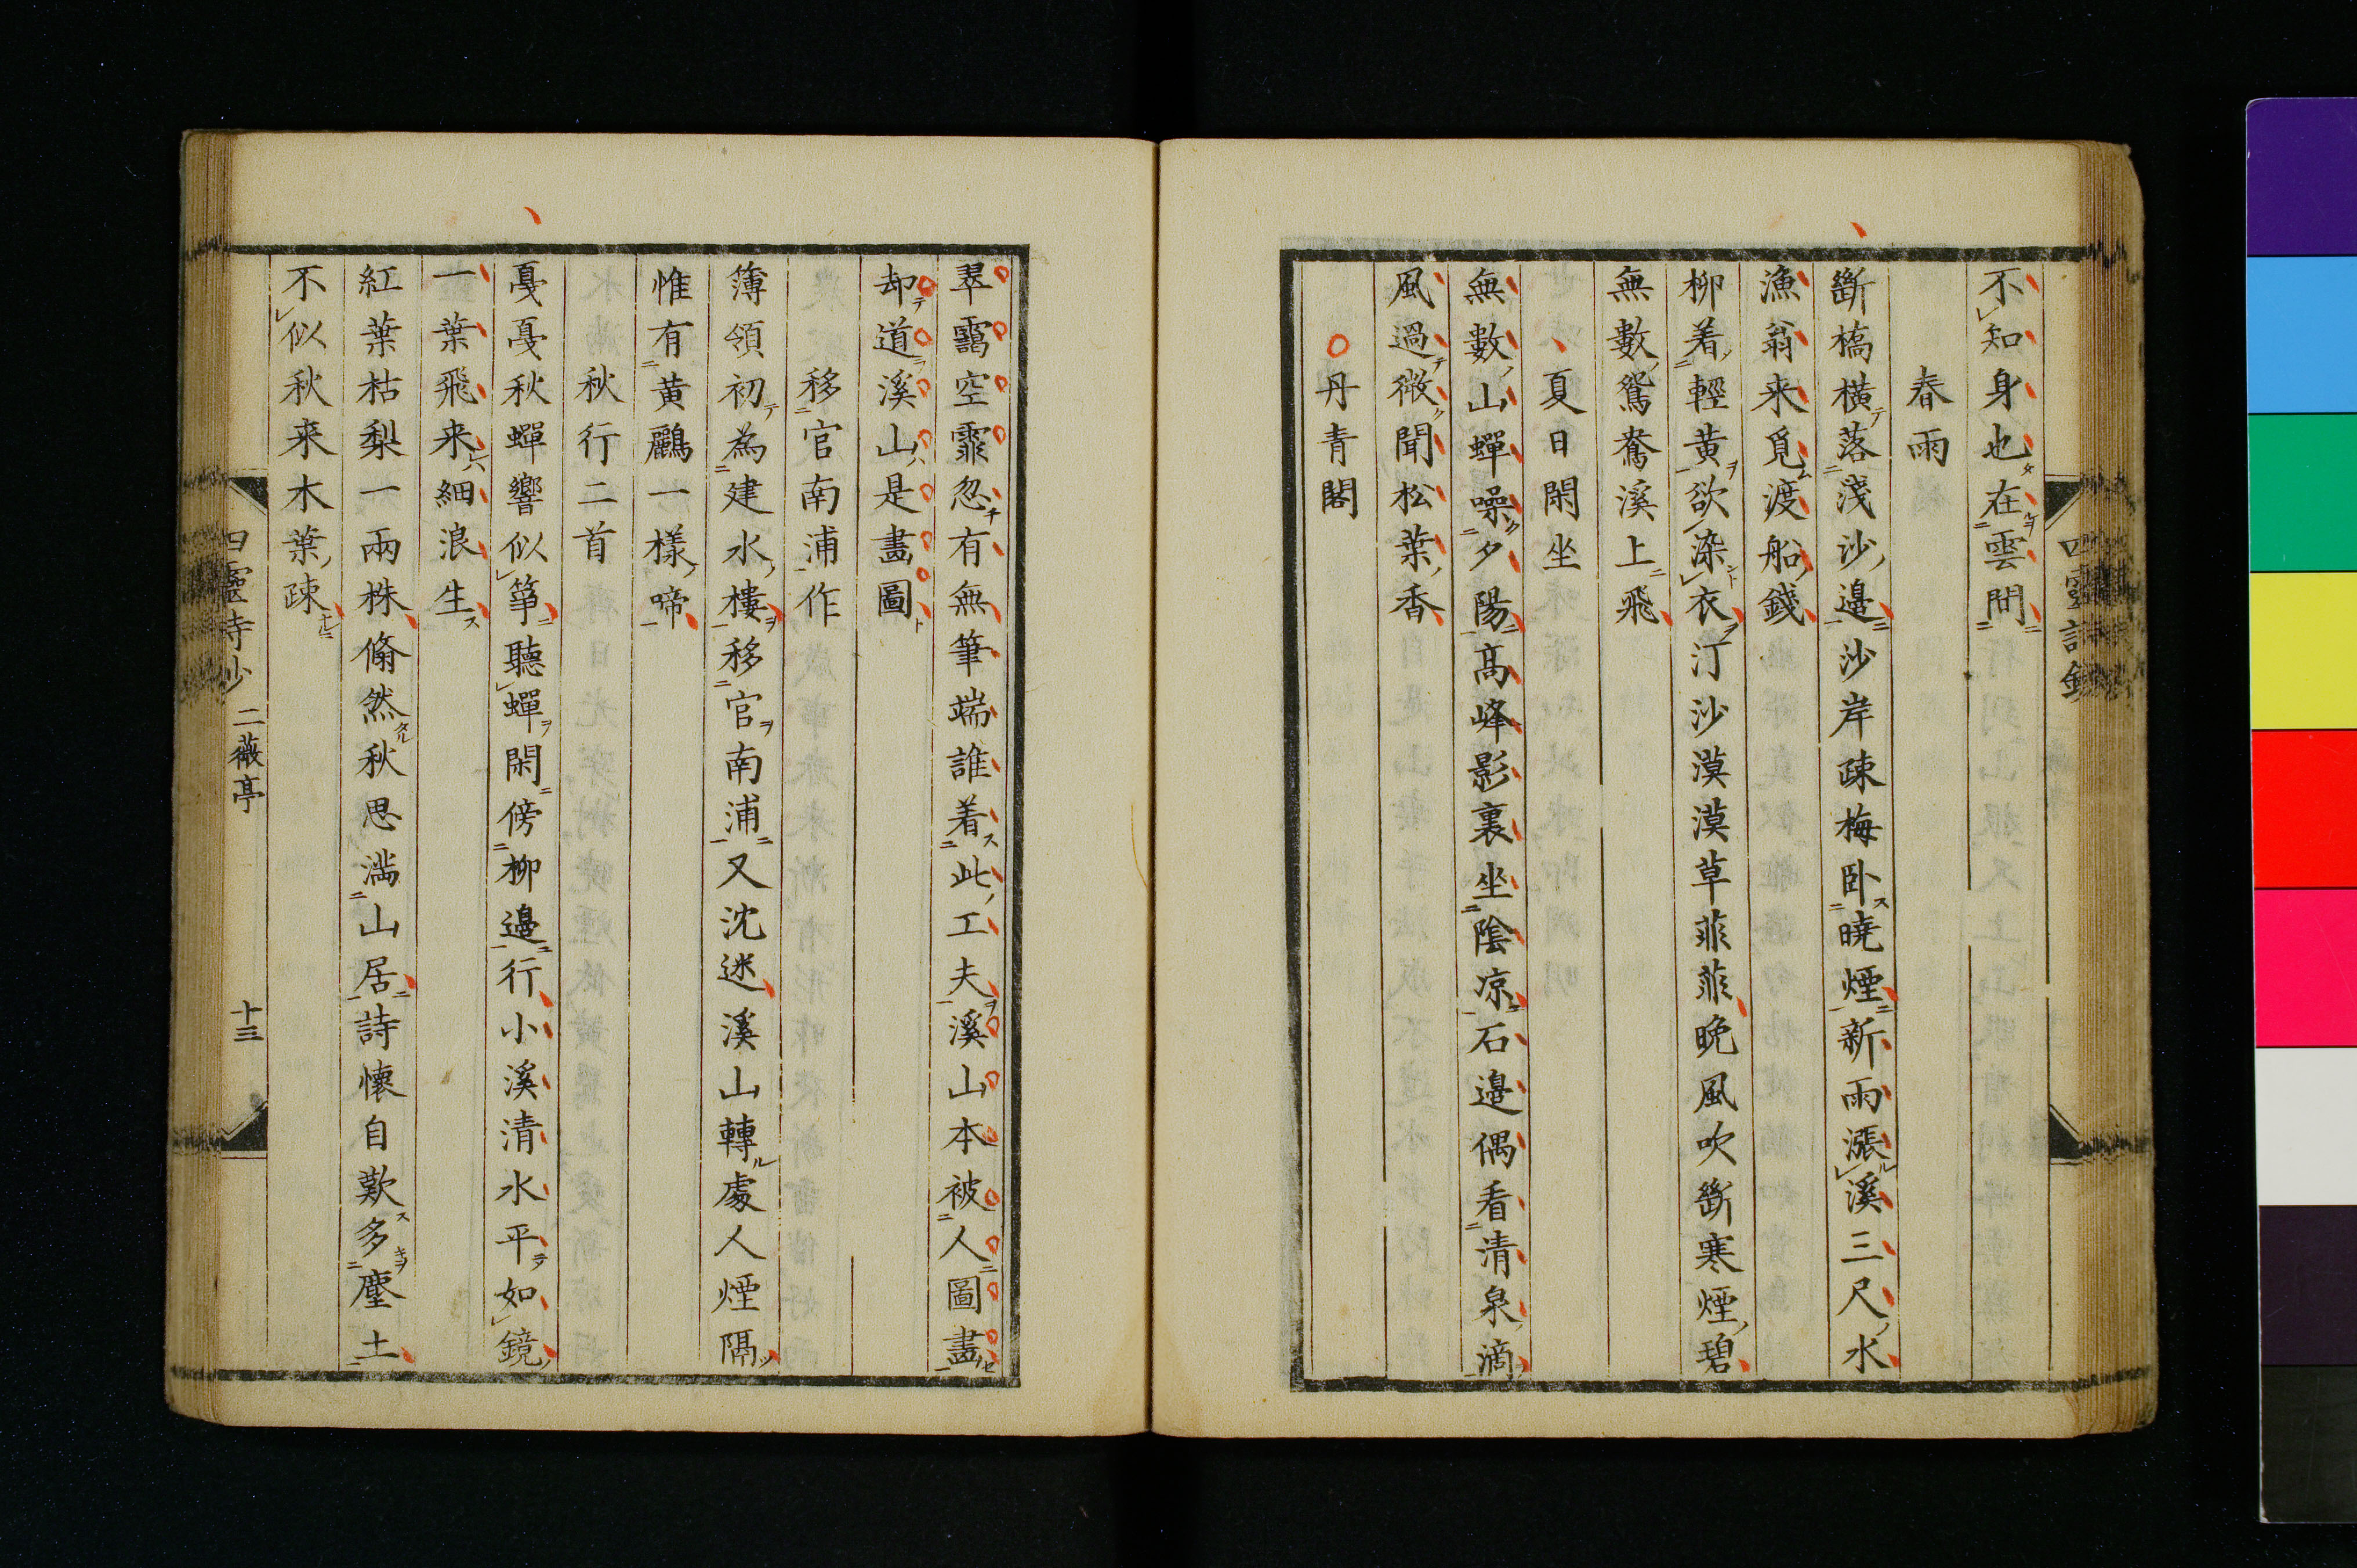 不知身也在雲間
春雨
斷橋横落淺沙邉沙岸疎梅卧曉煙新雨漲溪三尺水
漁翁来覓渡船錢
柳着輕黄欲染衣汀沙漠漠草菲菲晚風吹斷寒煙碧
無數鴛鴦溪上飛
夏日閑坐
無數山蟬噪夕陽高峰影裏坐陰凉石邉偶看清泉滴
風過微聞松葉香
丹青閣
翠靄空霏忽有無筆端誰着此工夫溪山本被人圖畫
却道溪山是畫圖
移官南浦作
簿領初為建水樓移官南浦又沈迷溪山轉處人煙隔
惟有黄鸝一樣啼
秋行二首
戛戛秋蟬響似筝聽蟬閑傍柳邉行小溪清水平如鏡
一葉飛来細浪生
紅葉枯梨一兩株翛然秋思満山居詩懷自歎多塵土
不似秋来木葉疎
二薇亭 十三